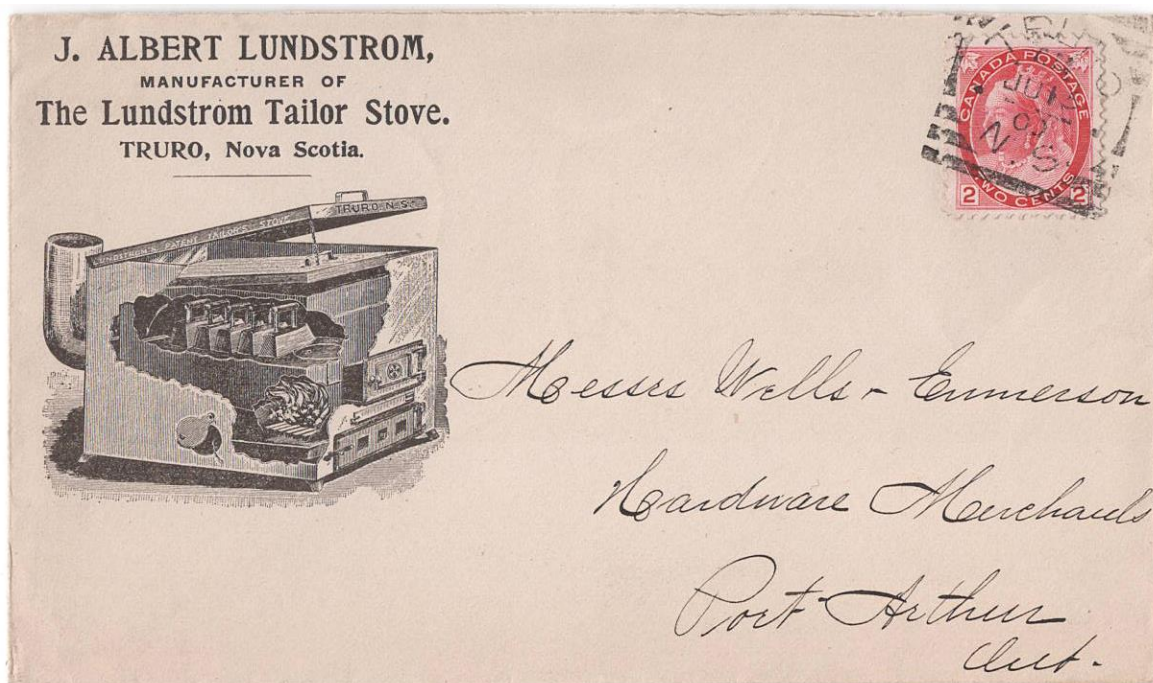 J. ALBERT LUNDSTROM,
MANUFACTURER OF
The Lundstrom Tailor Stove.
TRURO, Nova Scotia.
LUNDSTROM'S PATENT TAILOR'S STOVE
TRURO, N.S.
CANADA POSTAGE
2 TWO CENTS 2
JU 12
N.S.
Messrs Wells & Emmerson
Hardware Merchants
Port Arthur
Ont.